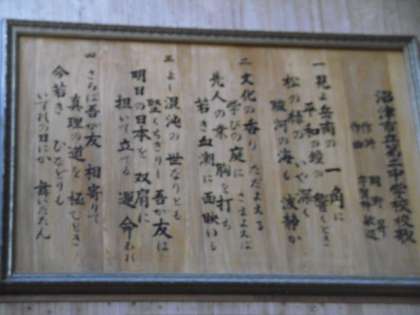 沼津市立第二中学校校歌
作詞
作曲
一 見よ岳南の一角に
平和の鐘の響くとき
松の緑のいや深く
駿河の海も波静か
二 文化の香りただよえる
学びの庭にさまよえば
先人の業胸を打ち
若き血潮に面映ゆる
三 よし混沌の世なりとも
堅くちぎりし吾が友は
明日の日本を双肩に
担いて立てる運命あり
四 さらば吾が友相寄りて
真理の道を極むとき
今若きひなどりも
いずれの日にか舞いたたん